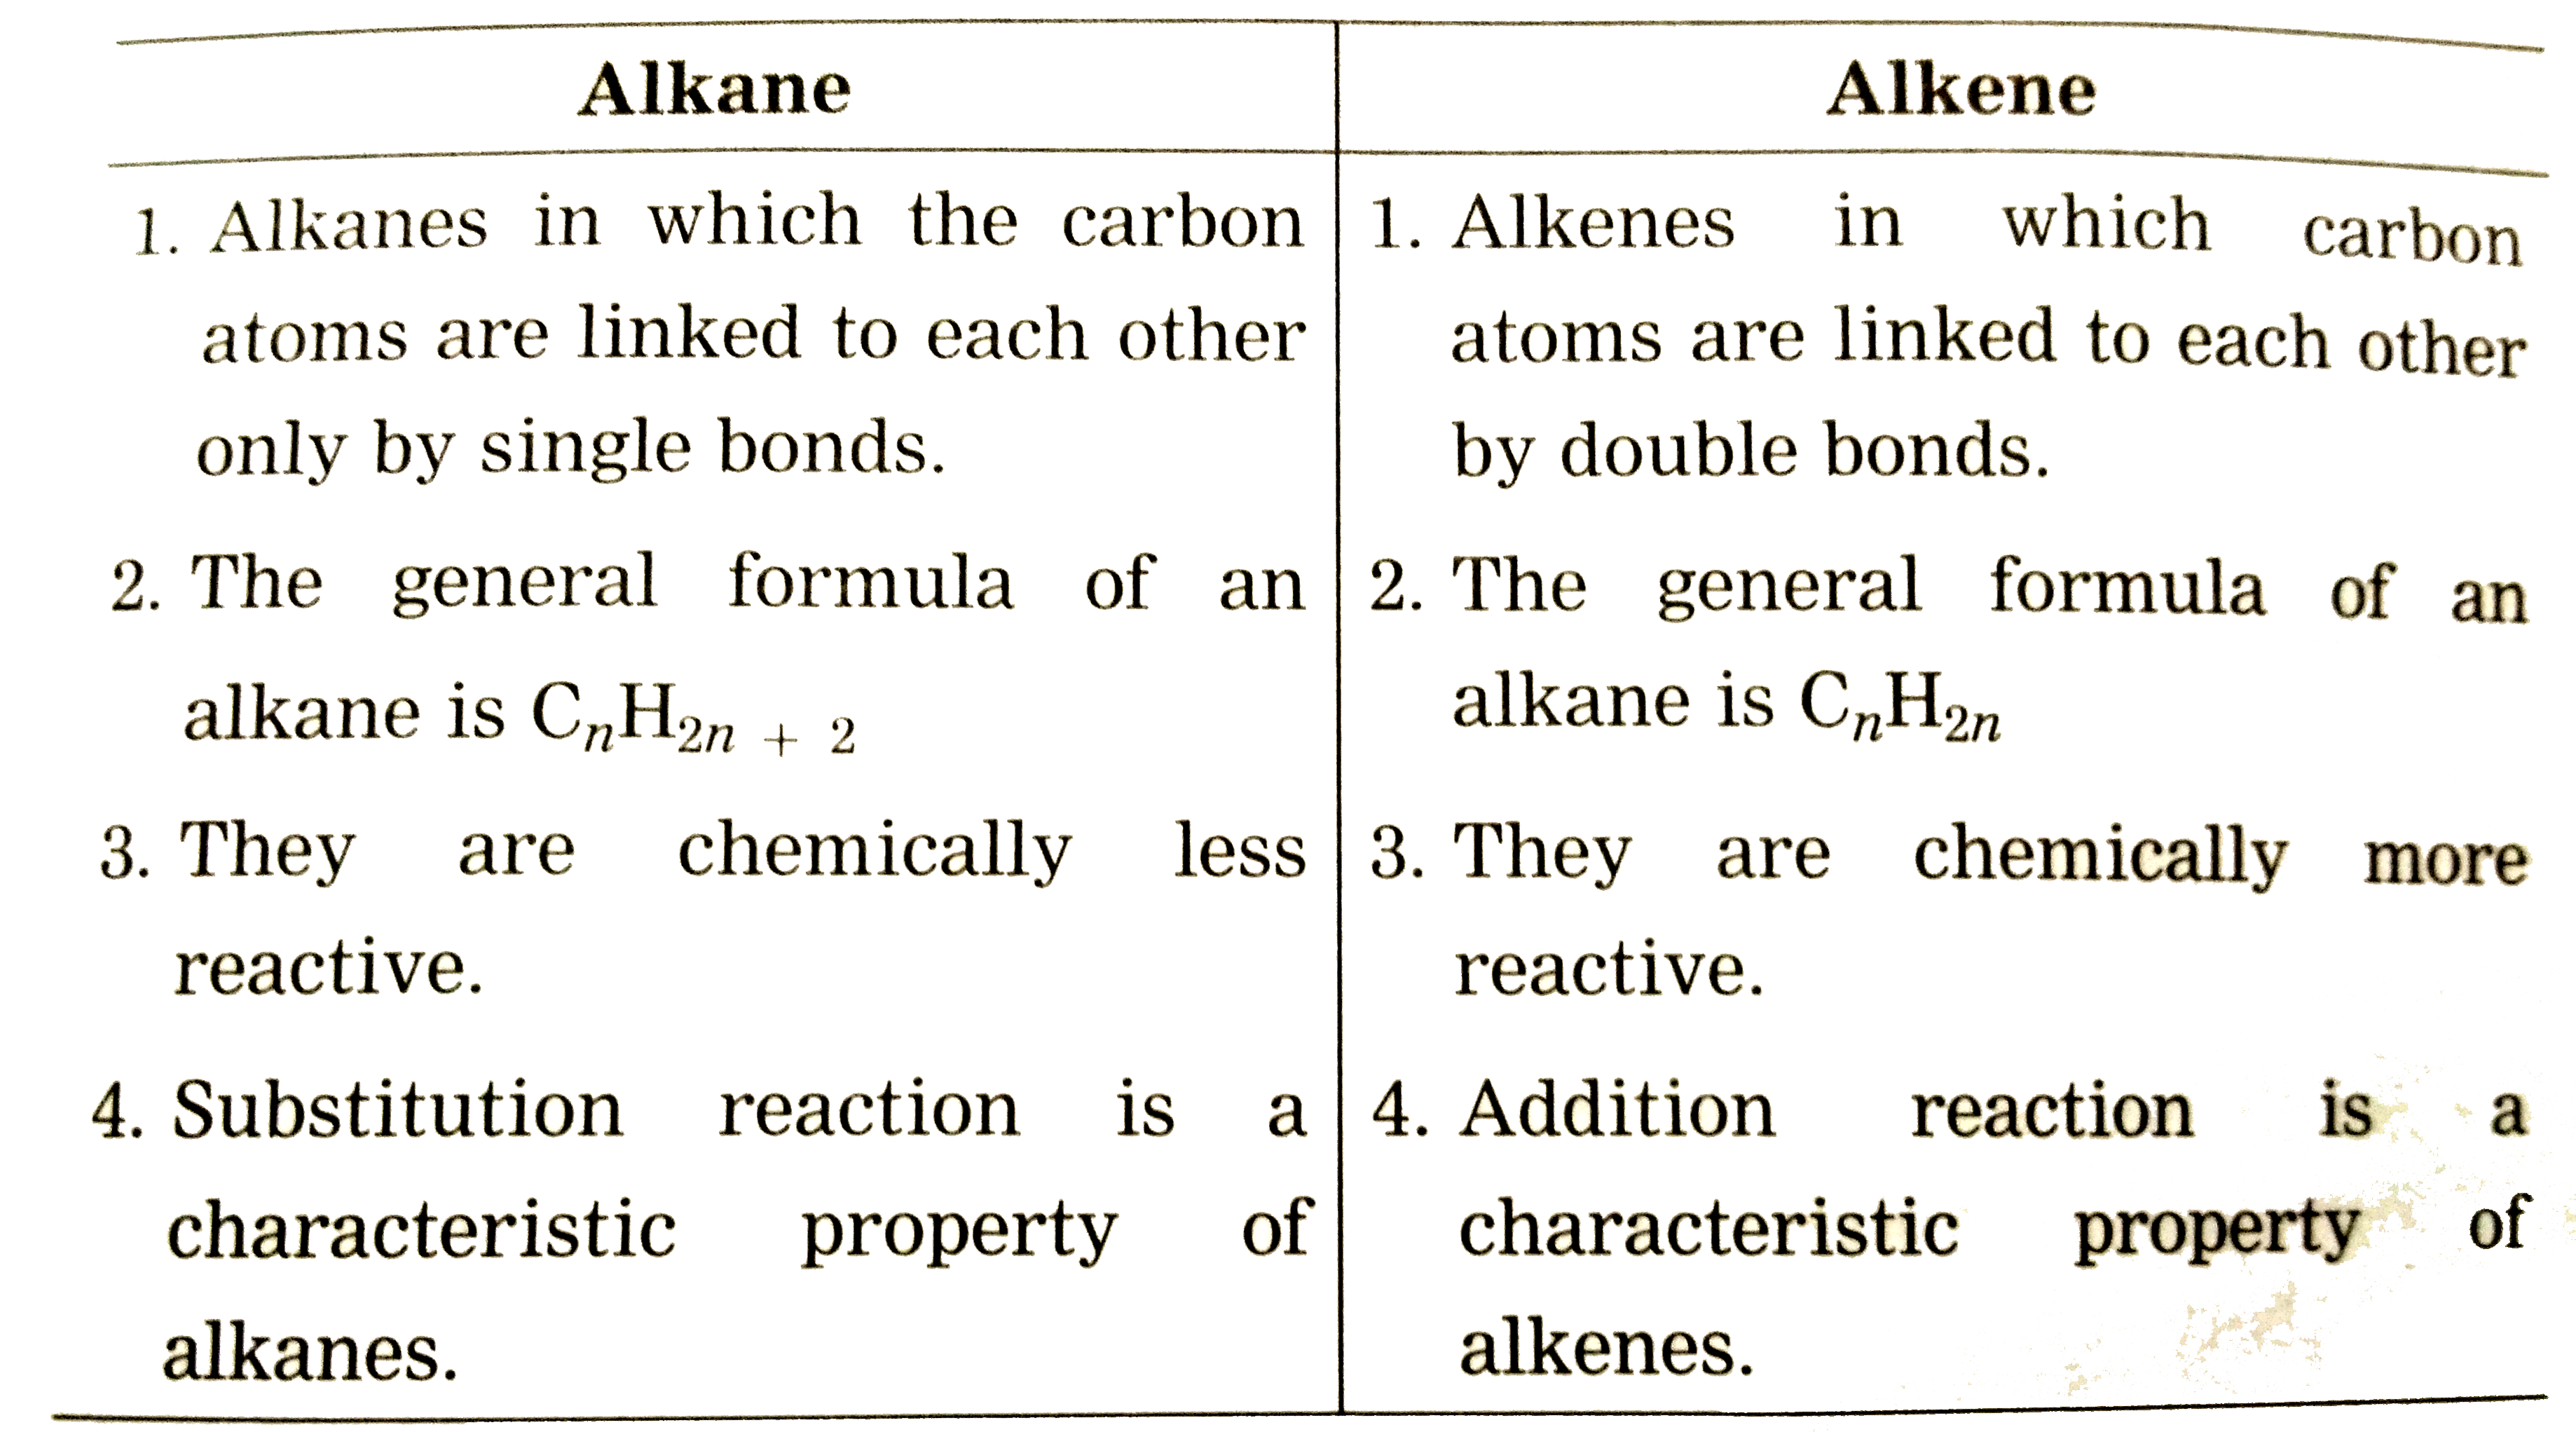 Alkane
1. Alkanes in which the carbon
atoms are linked to each other
only by single bonds.
2. The general formula of an
alkane is CₙH₂ₙ ₊ ₂
3. They are chemically less
reactive.
4. Substitution reaction is a
characteristic property of
alkanes.
Alkene
1. Alkenes in which carbon
atoms are linked to each other
by double bonds.
2. The general formula of an
alkane is CₙH₂ₙ
3. They are chemically more
reactive.
4. Addition reaction is a
characteristic property of
alkenes.